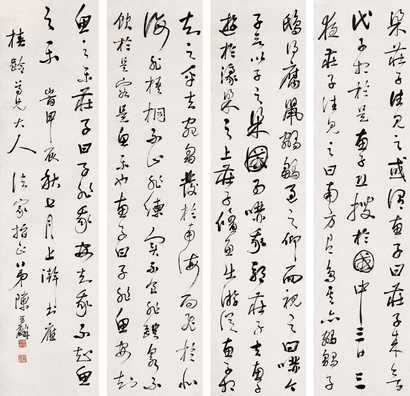 梁莊子往見之或謂惠子曰莊子來欲
代子相於是惠子恐搜於國中三日三
夜莊子往見之曰南方有鳥其名鵷鶵子
鴟得腐鼠鵷鶵過之仰而視之曰嚇今
子欲以子之梁國而嚇我邪莊子與惠子
遊於濠梁之上莊子曰鯈魚出游從惠子相
知之乎夫鵷鶵發於南海而飛於北
海非梧桐不止非練實不食非醴泉不
飲於是容是魚樂也惠子曰子非魚安知
魚之樂莊子曰子非我安知我不知魚
之樂 時甲辰秋七月上澣書應
桂齡尊兄大人 法家指正 弟陳